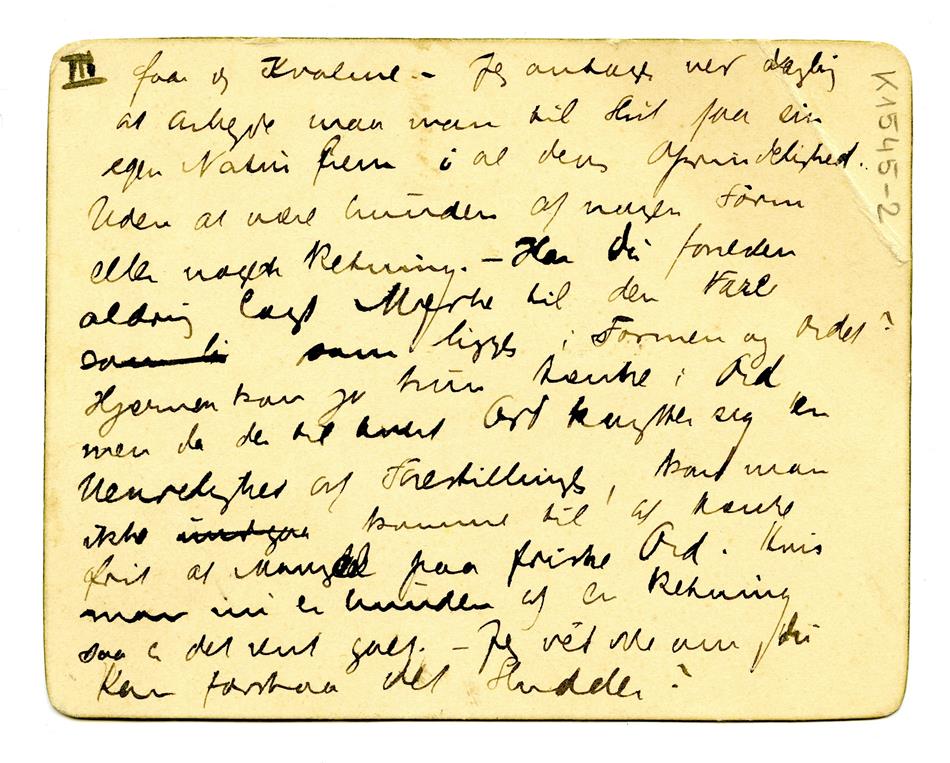 III faar og Kvalme. – Jeg antager ved daglig
at arbejde maa man til slut faa sin
egen Natur frem i al dens Oprindelighed.
Uden at være bunden af nogen Form
eller nogen Retning. – Har du foresten
aldrig lagt Mærke til den Fare
som li som ligger i Formen og Ordet?
Hjernen kan jo kun tænke i Ord
men da der til hvert Ord knytter sig en
Uendelighed af Forestillinger, kan man
ikke undgaa komme til at tænke
frit af Mangel paa friske Ord. Hvis
man nu er bunden af en Retning
saa er det rent galt. – Jeg véd ikke om du
kan forstaa det Sludder?
K1545-2